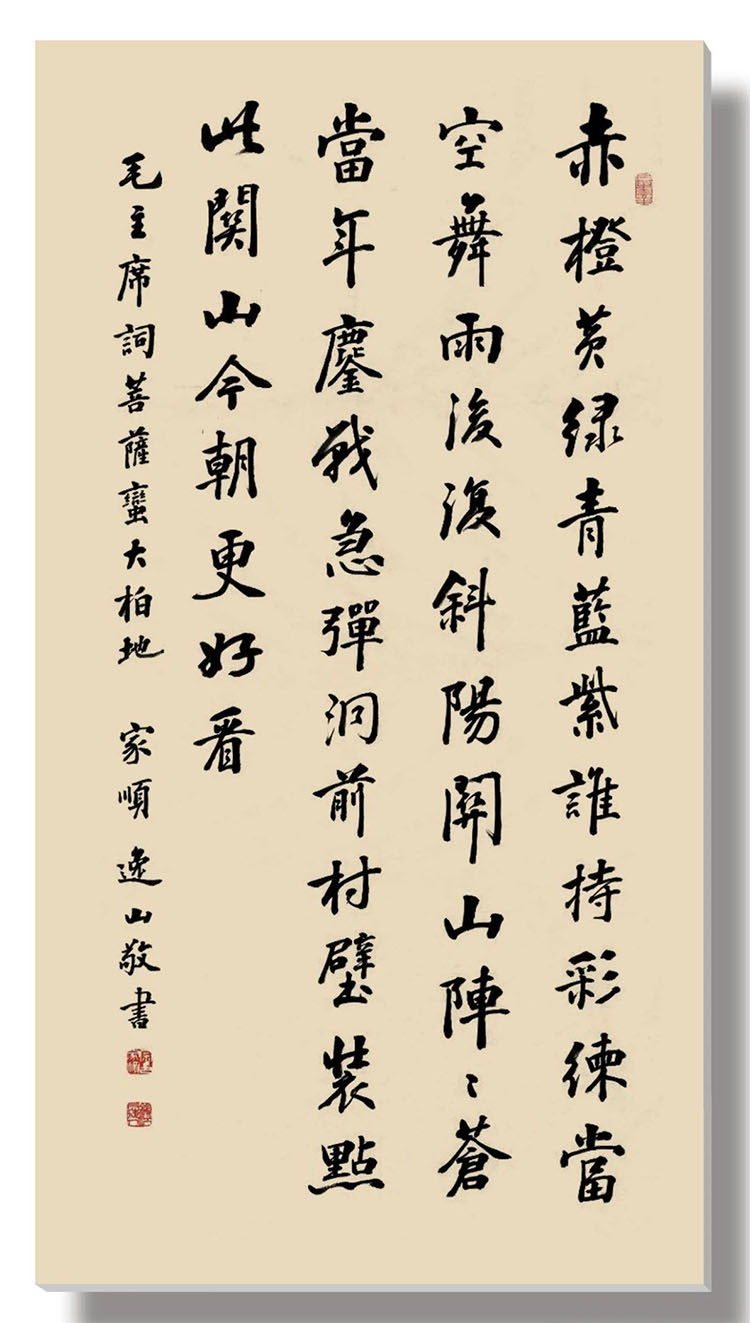 赤橙黄緑青藍紫誰持彩練當
空舞雨後復斜陽関山陣〻蒼
當年鏖戰急彈洞前村壁裝點
此関山今朝更好看
毛主席詞菩薩蠻大柏地 家順 逸山敬書